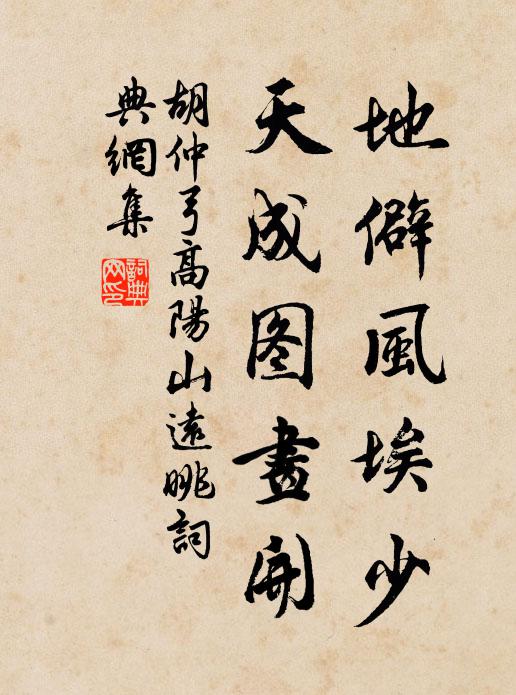 地僻風埃少
天成图畫開
胡仲弓高陽山遠眺詞
典網集
詞典网印